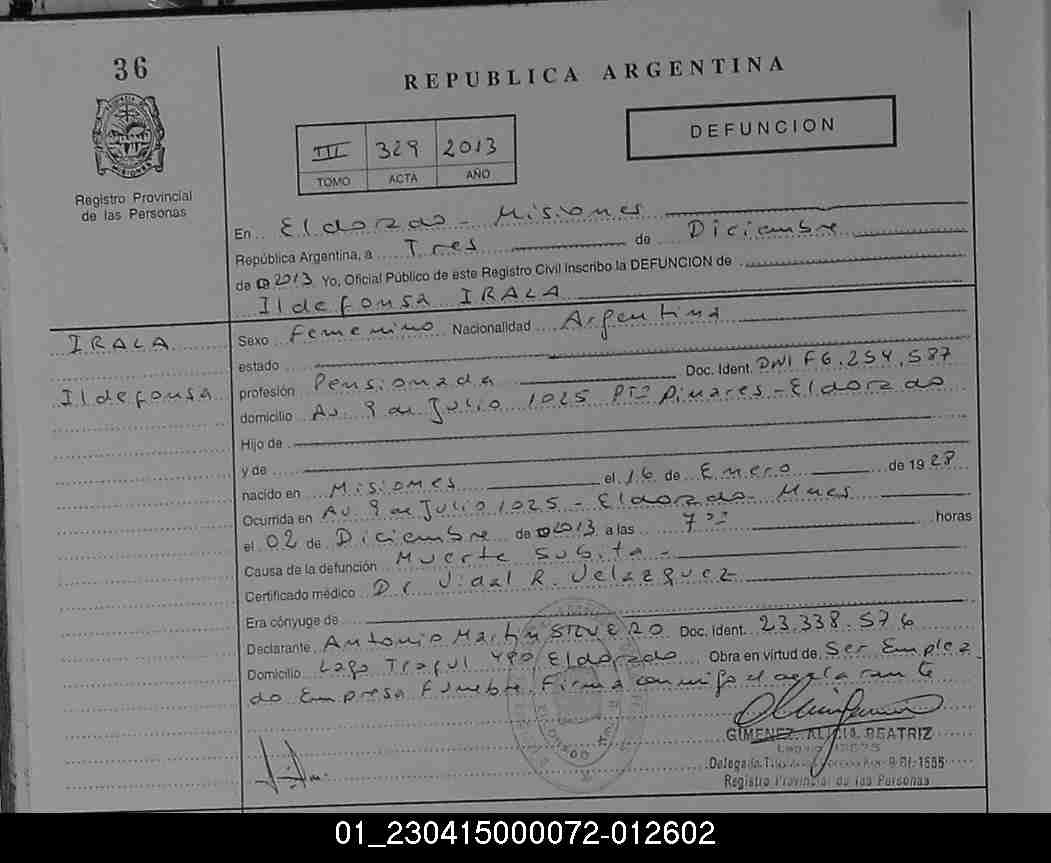 36
REPUBLICA ARGENTINA
DEFUNCION
III 329 2013
TOMO ACTA AÑO
Registro Provincial
de las Personas
En Eldorado - Misiones
República Argentina, a Tres de Diciembre
de 2013 Yo, Oficial Público de este Registro Civil Inscribo la DEFUNCION de
Ildefonsa IRALA
IRALA
Ildefonsa
Sexo Femenino Nacionalidad Argentina
estado
profesión Pensionada Doc. Ident. DNI F6.254.587
domicilio Av. 9 de Julio 1025 Pto Pinares - Eldorado
Hijo de
y de
nacido en Misiones el 16 de Enero de 1928
Ocurrida en Av. 9 de Julio 1025 - Eldorado - Mnes
el 02 de Diciembre de 2013 a las 7 horas
Causa de la defunción Muerte Subita -
Certificado médico Dr Vidal R. Velazquez
Era cónyuge de
Declarante Antonio Martin SILVERO Doc. Ident. 23.338.576
Domicilio Lago Traful 490 Eldorado Obra en virtud de Ser Emplea
do Empresa Funebre. Firma conmigo el
GIMENEZ, ALICIA BEATRIZ
Delegada
Registro Provincial de las Personas
01_230415000072-012602